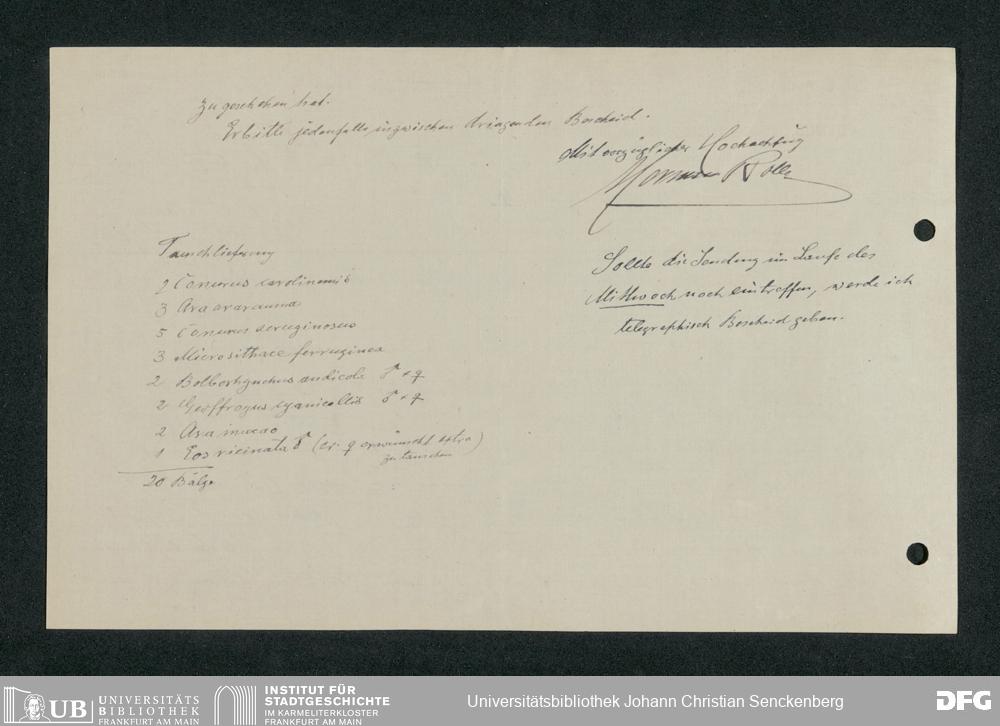 zu geschehen hat.
Erbitte jedenfalls inzwischen dringenden Bescheid.
Mit vorzüglicher Hochachtung
Hermann Rolle
Tauschlieferung
2 Conurus carolinensis
3 Ara ararauna
5 Conurus aeruginosus
3 Microsittace ferruginea
2 Bolborhynchus andicola ♂ + ♀
2 Geoffroyus cyanicollis ♂ + ♀
2 Ara macao
1 Eos ricinata ♂ (ev. ♀ erwünscht extra)
zu tauschen
20 Bälge
Sollte die Sendung im Laufe des
Mittwoch noch eintreffen, werde ich
telegraphisch Bescheid geben.
UB UNIVERSITÄTS
BIBLIOTHEK
FRANKFURT AM MAIN
INSTITUT FÜR
STADTGESCHICHTE
IM KARMELITERKLOSTER
FRANKFURT AM MAIN
Universitätsbibliothek Johann Christian Senckenberg
DFG